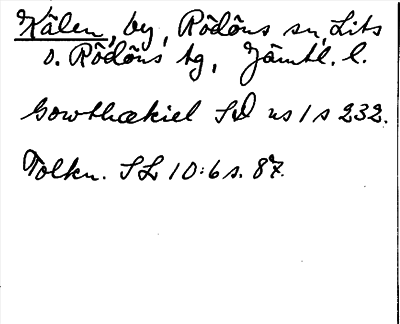 Kälen, by, Rödöns sn, Lits
o. Rödöns tg, Jämtl. l.
Gowthækiel SD ns 1 s 232.
Tolkn. SL 10:6 s. 87.